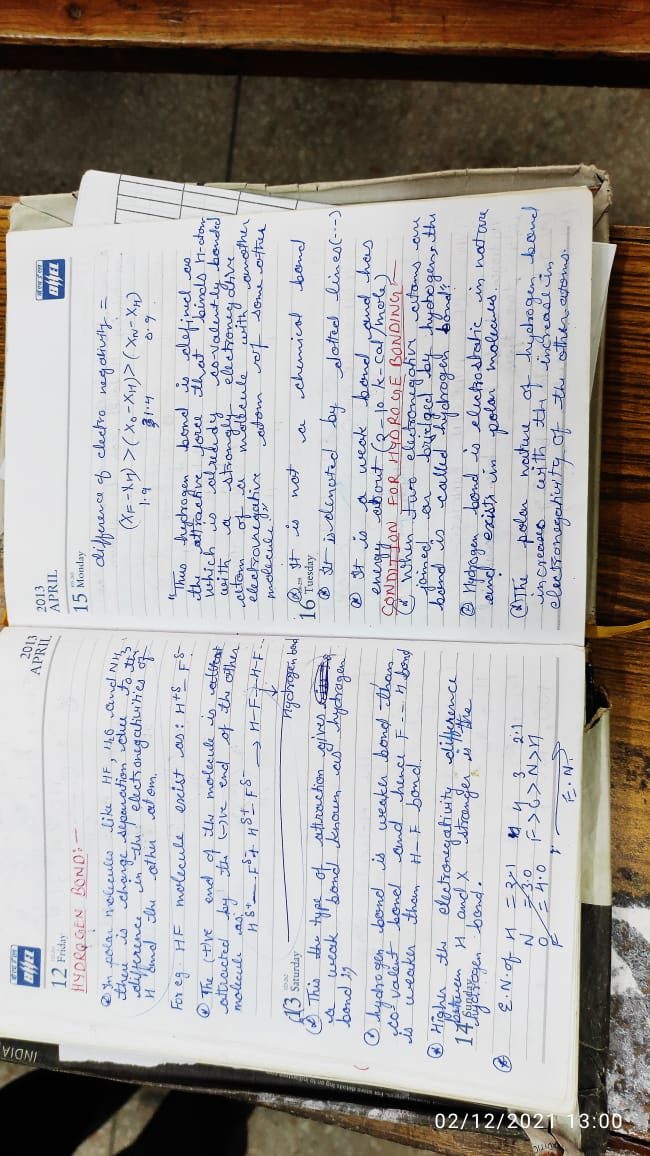 2013
APRIL
12 Friday
HYDROGEN BOND:-
In polar molecules like HF, H2O and NH3
there is charge separation due to the
difference in the electronegativities of
H and the other atom.
For eg. HF molecule exist as: H+δ – Fδ-
The (+)ve end of the molecule is
attracted by the (-)ve end of the other
molecule as.
Hδ+ – Fδ- + Hδ+ – Fδ- → H-F---H-F...
Hydrogen bond
13 Saturday
This type of attraction gives
a weak bond known as hydrogen
bond"
hydrogen bond is weaker bond than
covalent bond and hence F---H bond
is weaker than H-F bond.
Higher the electronegativity difference
between H and X stronger is the
14 Sunday
hydrogen bond.
E.N. of H = 2.1
N = 3.0
O
F = 4.0
4 3 2.1
F > O > N > H
E.N.
2013
APRIL
15 Monday
difference of electro negativity =
(XF - XH) > (XO - XH) > (XN - XH)
1.9 1.4 0.9
"Thus hydrogen bond is defined as
the attractive force that binds H-atom
which is already covalently bonded
with a strongly electronegative
atom of a molecule with another
electronegative atom of some other
molecule."
It is not a chemical bond
16 Tuesday
It is denoted by dotted lines (---)
It is a weak bond and has
energy about (2-10 k-cal/mole)
CONDITION FOR HYDROGE BONDING:-
When two electronegative atoms are
joined or bridged by hydrogen, the
bond is called hydrogen bond.
Hydrogen bond is electrostatic in nature
and exists in polar molecules.
The polar nature of hydrogen bond
increases with the increase in
electronegativity of the other atoms.
INDIA
02/12/2021 13:00